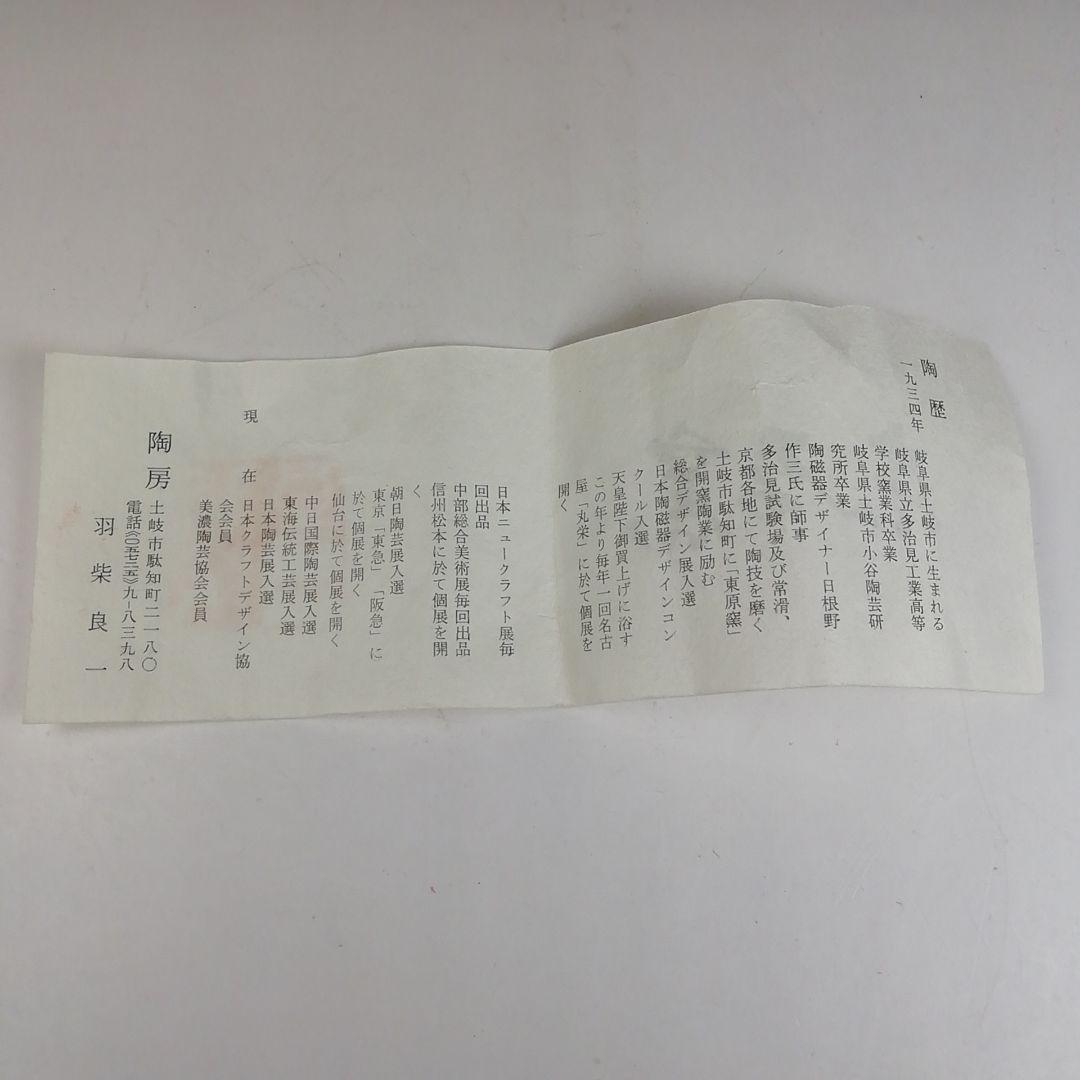 陶歴
一九三四年 岐阜県土岐市に生まれる
岐阜県立多治見工業高等
学校窯業科卒業
岐阜県土岐市小谷陶芸研
究所卒業
陶磁器デザイナー日根野
作三氏に師事
多治見試験場及び常滑、
京都各地にて陶技を磨く
土岐市駄知町に「東原窯」
を開窯陶業に励む
総合デザイン展入選
日本陶磁器デザインコン
クール入選
天皇陛下御買上げに浴す
この年より毎年一回名古
屋「丸栄」に於て個展を
開く
日本ニュークラフト展毎
回出品
中部総合美術展毎回出品
信州松本に於て個展を開
く
朝日陶芸展入選
東京「東急」「阪急」に
於て個展を開く
仙台に於て個展を開く
中日国際陶芸展入選
東海伝統工芸展入選
日本陶芸展入選
現在 日本クラフトデザイン協
会会員
美濃陶芸協会会員
陶房 土岐市駄知町二一八〇
電話《〇五七二五》九-八三九八
羽柴良一